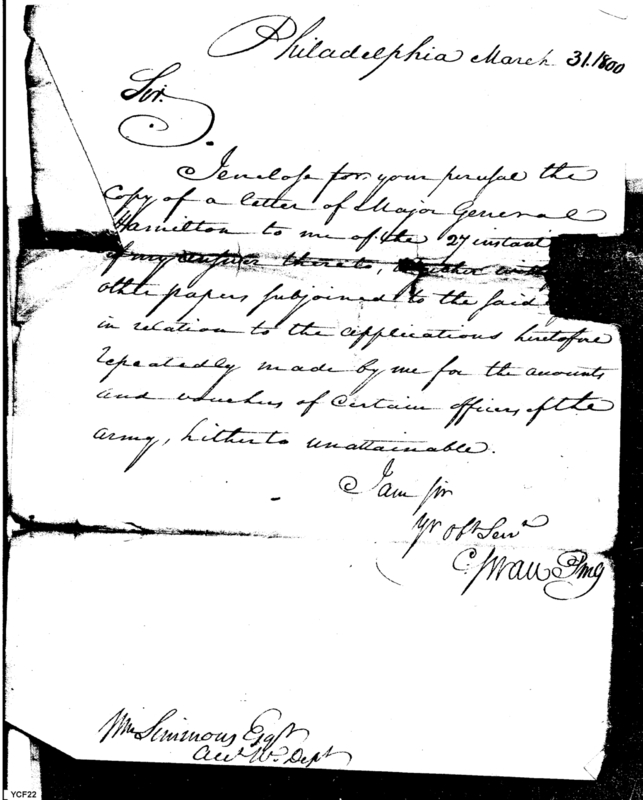 Philadelphia March 31. 1800
Sir.
I enclose for your perusal the
Copy of a letter of Major General
Hamilton to me of the 27 instant
of my answer thereto, together with
other papers subjoined to the said
in relation to the applications heretofore
repeatedly made by me for the amounts
and vouchers of Certain officers of the
army, hitherto unattainable.
I am Sir
Yr Obt Servt
C. Swan PMG
Wm Simmons Esqr
Acct Wr Dept
YCF22